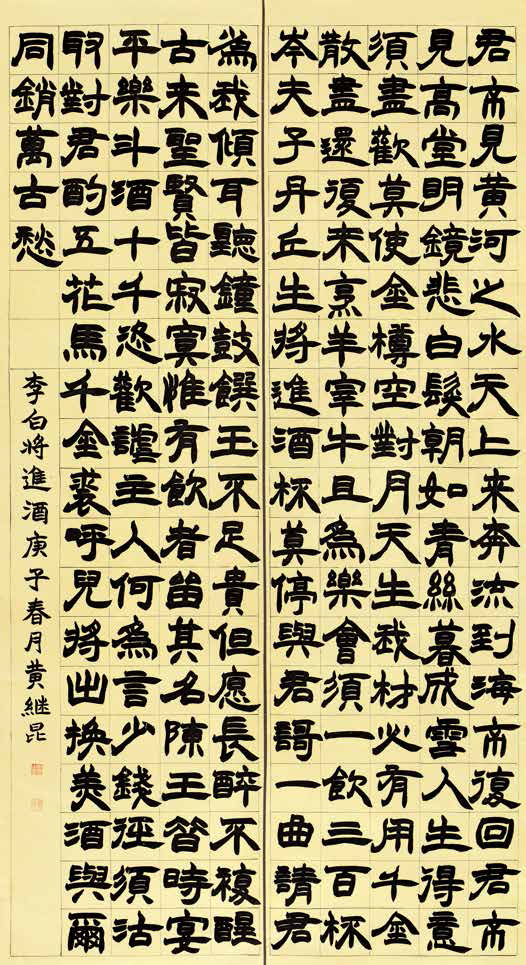 君不見黄河之水天上来奔流到海不復回君不
見高堂明鏡悲白髮朝如青絲暮成雪人生得意
須盡歡莫使金樽空對月天生我材必有用千金
散盡還復来烹羊宰牛且為樂會須一飲三百杯
岑夫子丹丘生將進酒杯莫停與君謌一曲請君
為我傾耳聽鐘鼓饌玉不足貴但愿長醉不複醒
古来聖賢皆寂寞惟有飲者留其名陳王昔時宴
平樂斗酒十千恣歡謔主人何為言少錢徑須沽
取對君酌五花馬千金裘呼兒將出換美酒與爾
同銷萬古愁
李白将進酒庚子春月黄継昆